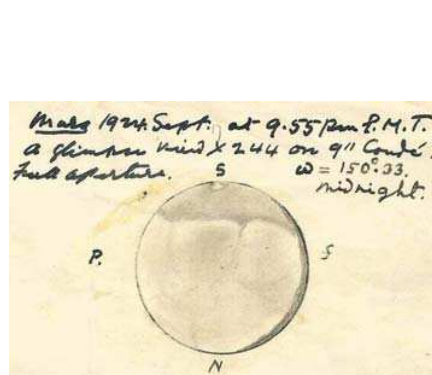 Mars 1924. Sept. at 9.55 pm G.M.T.
A glimpse view × 244 on 9" Coudé.
Full aperture. ω = 150°.33.
midnight.
S
P. f
N